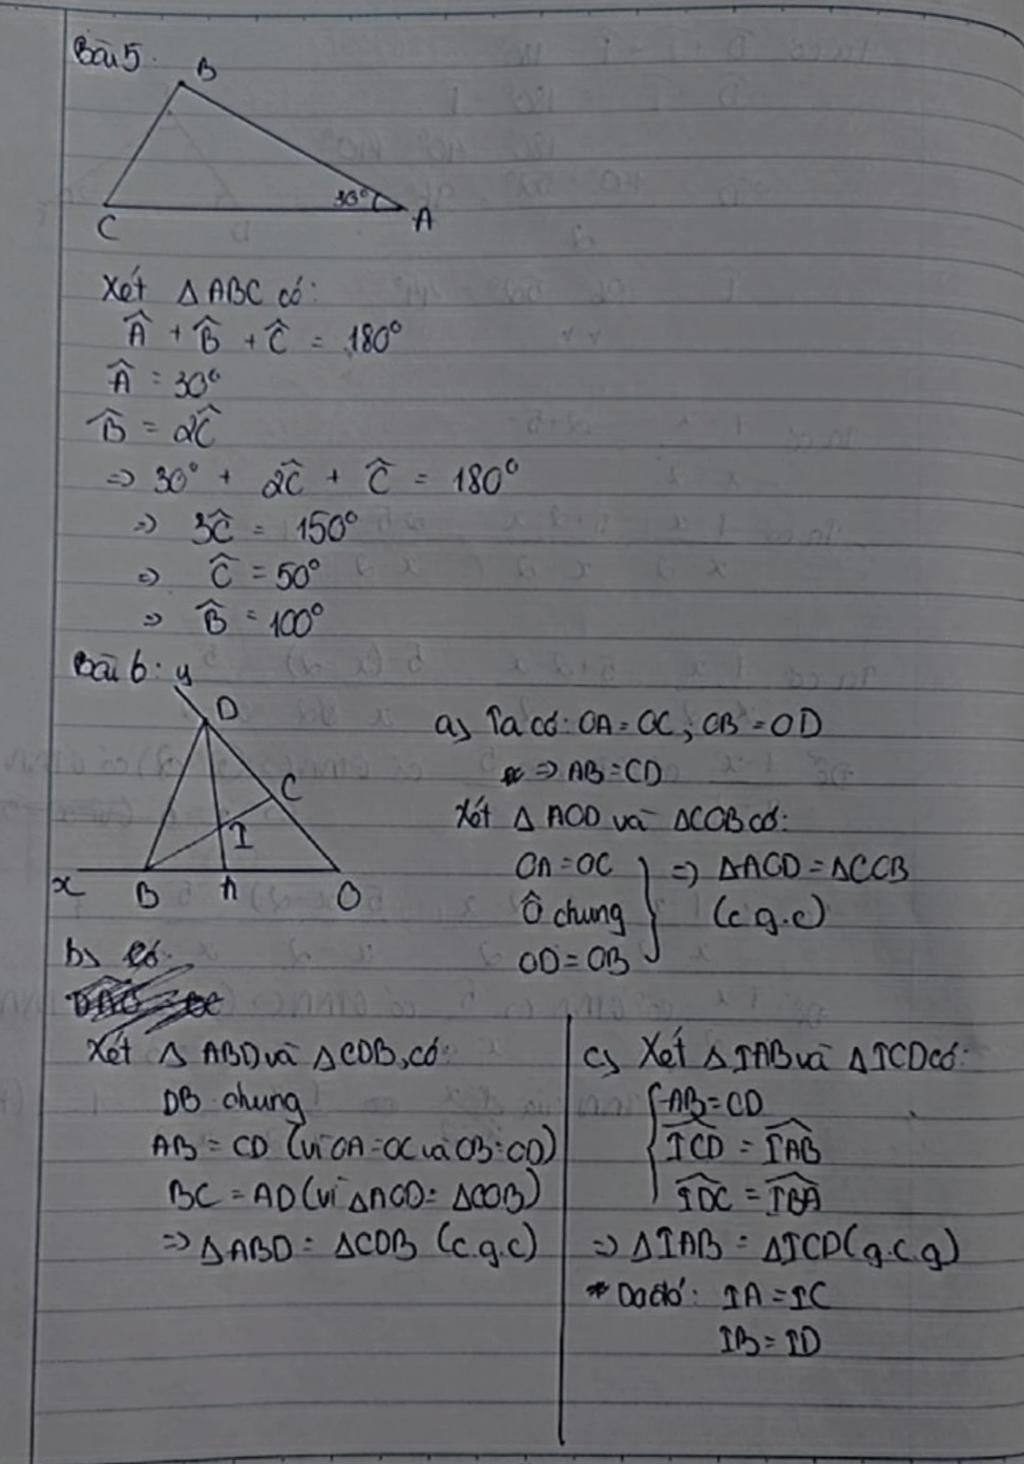 Bài 5.
B
30°
C
A
Xét △ABC có:
Â + B̂ + Ĉ = 180°
Â = 30°
B̂ = 2Ĉ
=> 30° + 2Ĉ + Ĉ = 180°
=> 3Ĉ = 150°
=> Ĉ = 50°
=> B̂ = 100°
Bài 6:
y
D
C
I
x
B
A
O
a) Ta có: OA = OC; OB = OD
=> AB = CD
Xét △AOD và △COB có:
OA = OC
Ô chung
OD = OB
=> △AOD = △COB
(c.g.c)
b) Có
Xét △ABD và △CDB, có:
DB chung
AB = CD (vì OA = OC và OB = OD)
BC = AD (vì △AOD = △COB)
=> △ABD = △CDB (c.g.c)
c) Xét △IAB và △ICD có:
AB = CD
ICD = IAB
IDC = IBA
=> △IAB = △ICD (g.c.g)
* Do đó: IA = IC
IB = ID